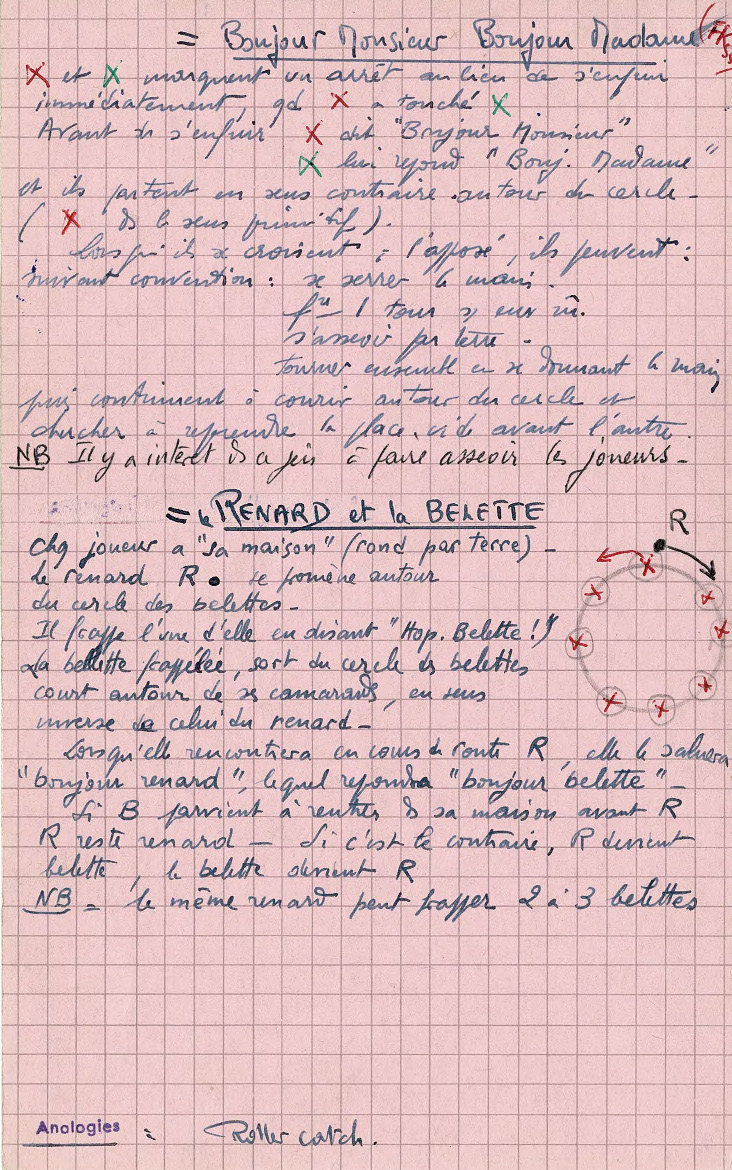 = Bonjour Monsieur Bonjour Madame
X et X marquent un arrêt au lieu de s'enfuir
immédiatement, qd X a touché X
Avant de s'enfuir X dit "Bonjour Monsieur"
X lui repond "Bonj. Madame"
et ils partent en sens contraire autour du cercle -
( X ds le sens primitif ).
Lorsqu'ils se croisent, à l'opposé, ils peuvent :
suivant convention : se serrer la main.
1 tour
s'asseoir par terre -
tourner ensemble en se donnant la main
puis continuent à courir autour du cercle et
chercher à reprendre la place vide avant l'autre.
NB Il y a intérêt ds ce jeu à faire asseoir les joueurs -
= le RENARD et la BELETTE
R
chq joueur a "sa maison" (rond par terre) -
Le renard R • se promène autour
du cercle des belettes -
Il frappe l'une d'elle en disant "Hop. Belette !"
La belette frappée, sort du cercle des belettes
court autour de ses camarades, en sens
inverse de celui du renard -
Lorsqu'elle rencontrera en cours de route R, elle le saluera
"bonjour renard", lequel repondra "bonjour belette" -
Si B parvient à rentrer ds sa maison avant R
R reste renard - Si c'est le contraire, R devient
belette, la belette devient R
NB = le même renard peut frapper 2 à 3 belettes
Anologies : Roller catch.